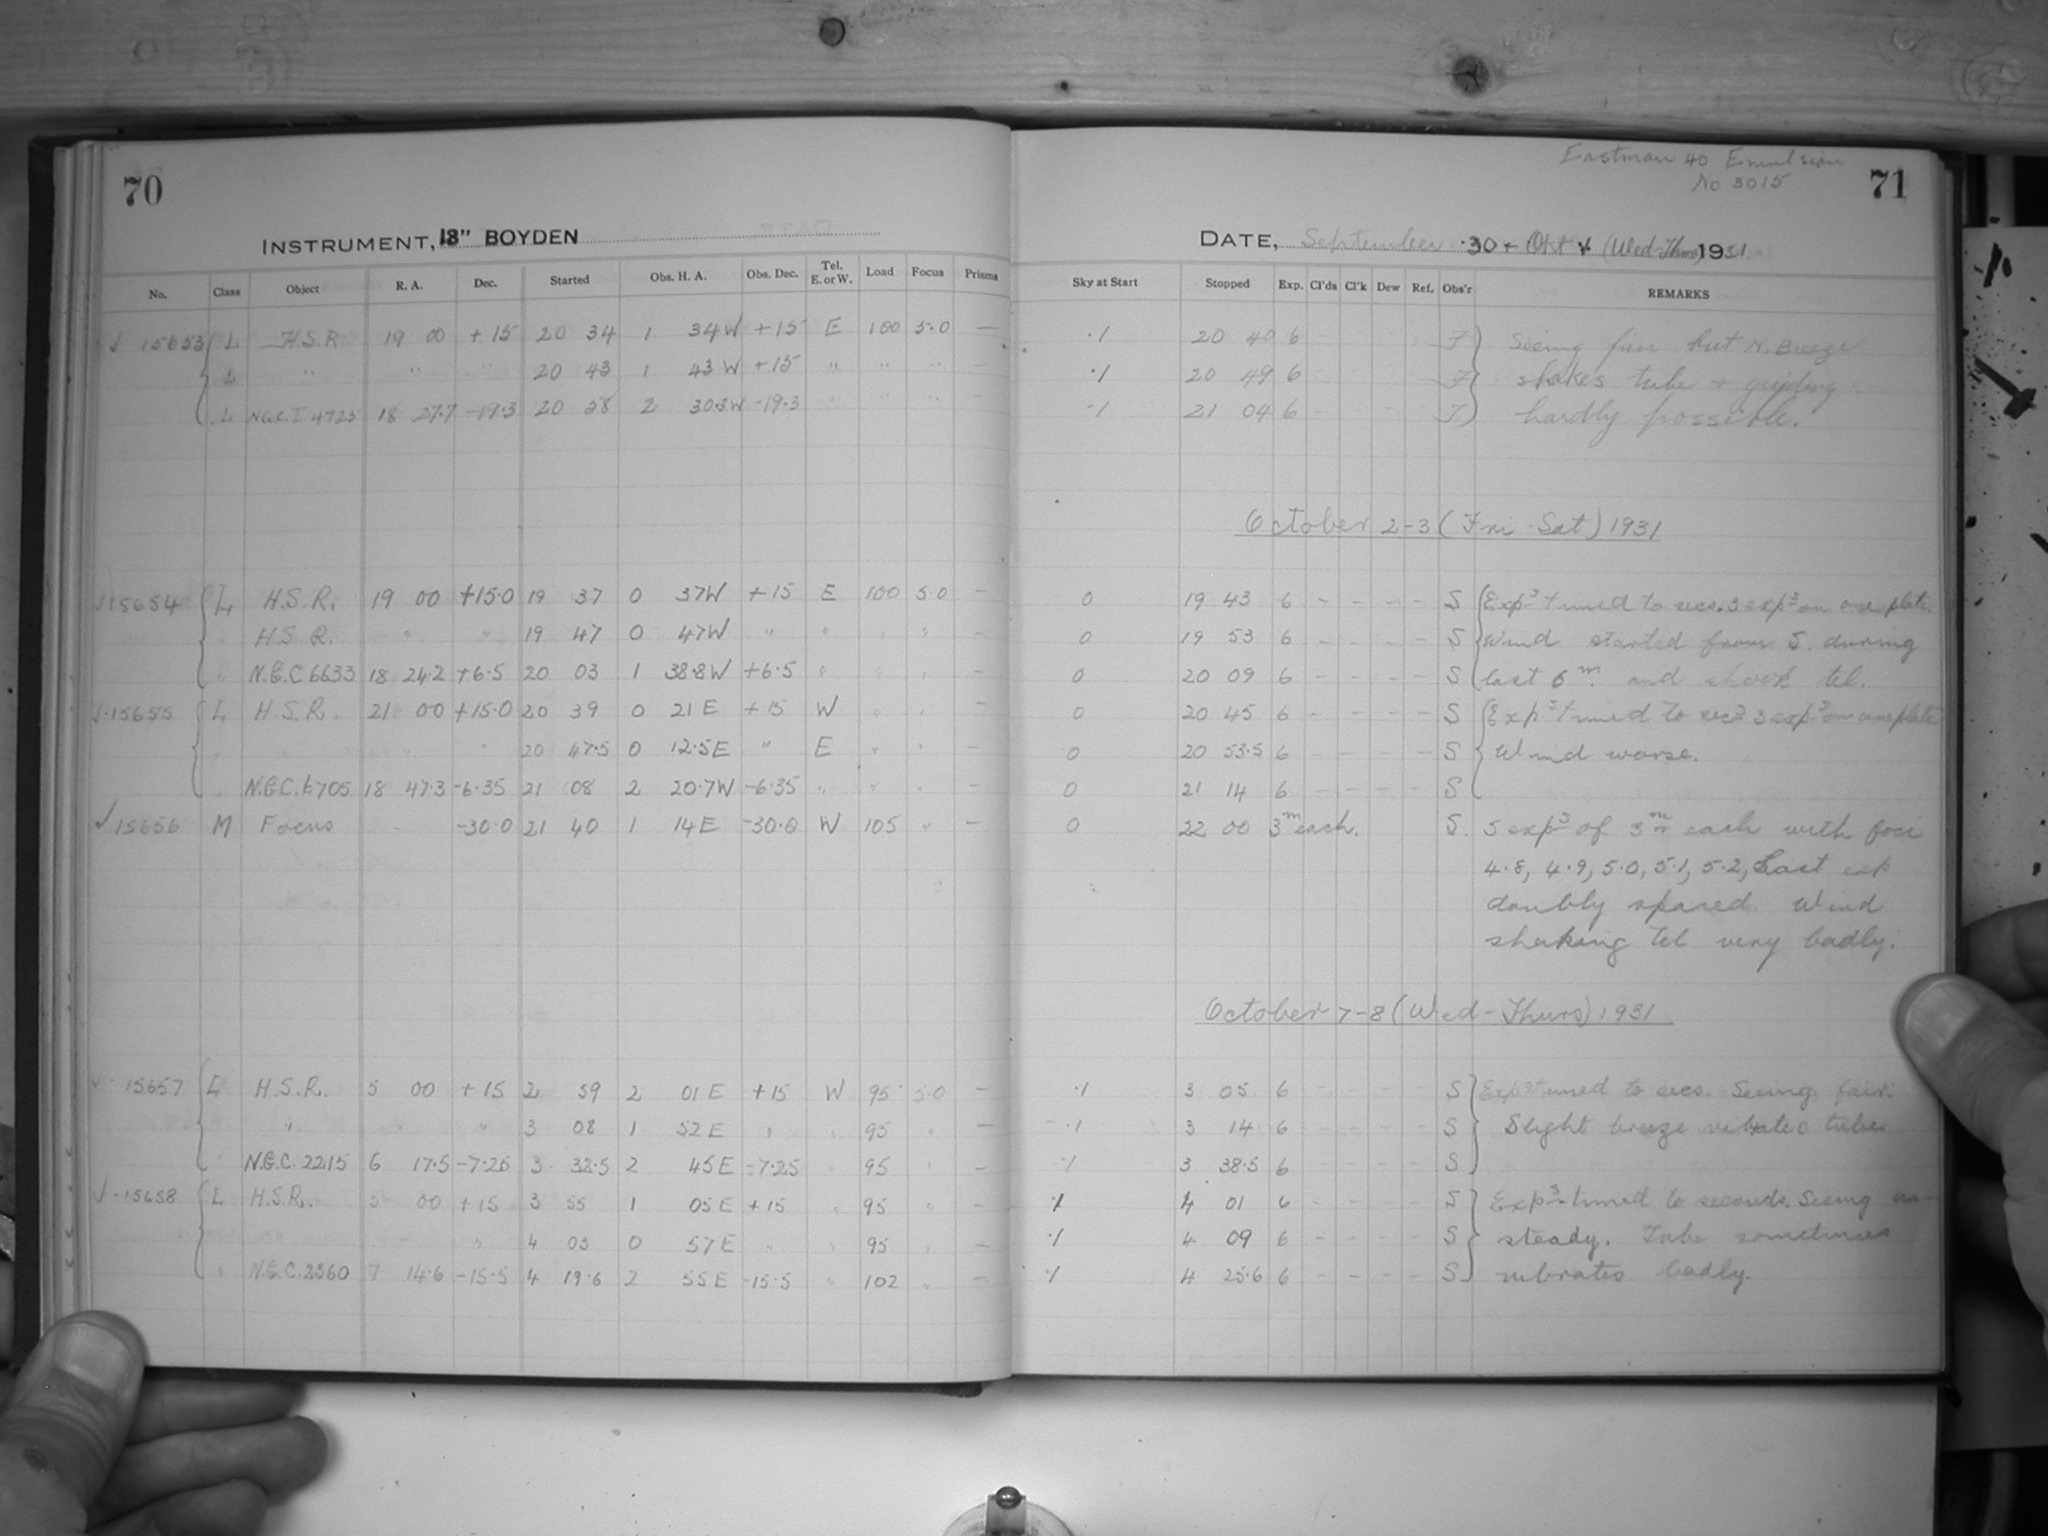 70
INSTRUMENT, 18" BOYDEN
No. Class Object R. A. Dec. Started Obs. H. A. Obs. Dec. Tel. E. or W. Load Focus Prisms
✓ 15653 L H.S.R. 19 00 +15 20 34 1 34W +15 E 100 5.0 —
L " " " 20 43 1 43W +15 " " " —
L N.G.C. I 4725 18 27.7 -19.3 20 58 2 30.3W -19.3 " " " —
✓ 15654 L H.S.R. 19 00 +15.0 19 37 0 37W +15 E 100 5.0 —
" H.S.R. " " 19 47 0 47W " " " " —
" N.G.C 6633 18 24.2 +6.5 20 03 1 38.8W +6.5 " " " —
✓ 15655 L H.S.R. 21 00 +15.0 20 39 0 21E +15 W " " —
" " " " 20 47.5 0 12.5E " E " " —
" N.G.C. 6705 18 47.3 -6.35 21 08 2 20.7W -6.35 " " " —
✓ 15656 M Focus -30.0 21 40 1 14E -30.0 W 105 " —
✓ 15657 L H.S.R. 5 00 +15 2 59 2 01E +15 W 95 5.0 —
" " " 3 08 1 52E " " 95 " —
" N.G.C. 2215 6 17.5 -7.25 3 32.5 2 45E -7.25 " 95 " —
✓ 15658 L H.S.R. 5 00 +15 3 55 1 05E +15 " 95 " —
" " " 4 03 0 57E " " 95 " —
" N.G.C. 2360 7 14.6 -15.5 4 19.6 2 55E -15.5 " 102 " —
Eastman 40 Emulsion
No 3015
71
DATE, September 30 + Oct 1 (Wed-Thurs) 1931
Sky at Start Stopped Exp. Cl'ds Cl'k Dew Ref. Obs'r REMARKS
.1 20 40 6 J Seeing fair but N. Breeze
.1 20 49 6 J shakes tube + guiding
.1 21 04 6 J hardly possible.
October 2-3 (Fri-Sat) 1931
0 19 43 6 - - - - S Exps timed to secs. 3 exps on one plate.
0 19 53 6 - - - - S Wind started from S. during
0 20 09 6 - - - - S last 6m. and shook tel.
0 20 45 6 - - - - S Exps timed to secs 3 exps on one plate
0 20 53.5 6 - - - - S Wind worse.
0 21 14 6 - - - - S
0 22 00 3m each. S. 5 exps of 3m each with foci
4.8, 4.9, 5.0, 5.1, 5.2, Last exp
doubly spaced. Wind
shaking tel very badly.
October 7-8 (Wed-Thurs) 1931
.1 3 05 6 - - - - S Exps timed to secs. Seeing fair.
.1 3 14 6 - - - - S Slight breeze vibrates tube
.1 3 38.5 6 - - - - S
.1 4 01 6 - - - - S Exps timed to seconds. Seeing un-
.1 4 09 6 - - - - S steady. Tube sometimes
.1 4 25.6 6 - - - - S vibrates badly.